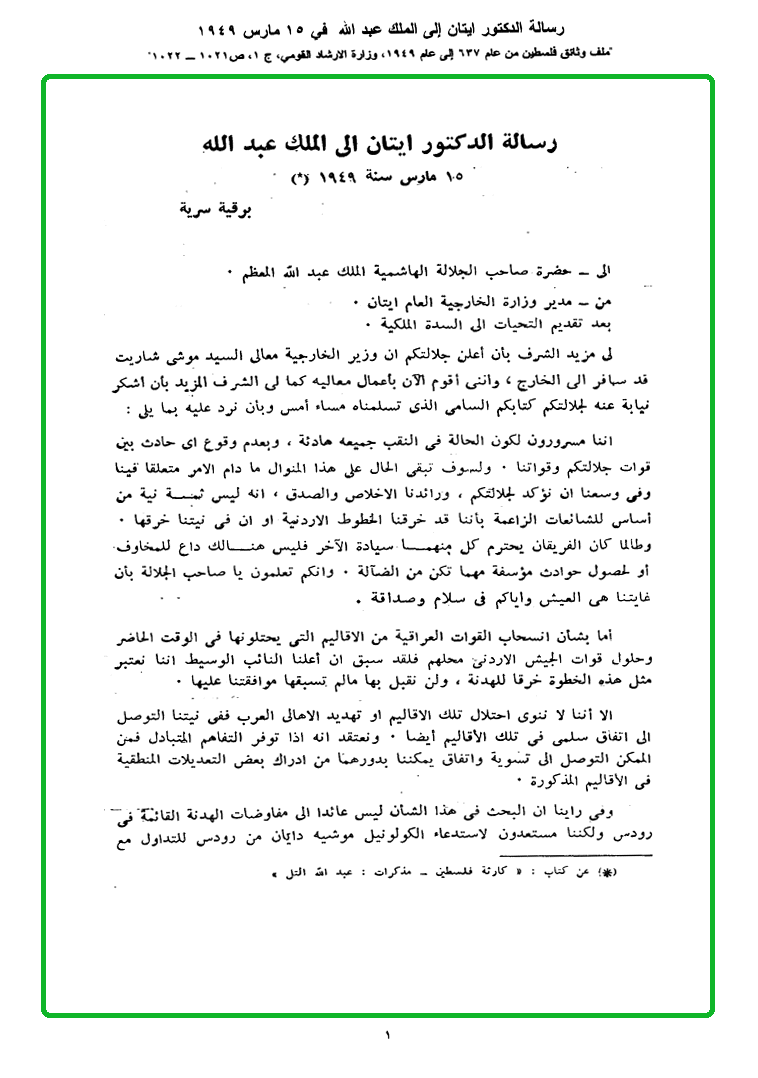 رسالة الدكتور ايتان إلى الملك عبد الله في ١٥ مارس ١٩٤٩
"ملف وثائق فلسطين من عام ٦٣٧ إلى عام ١٩٤٩، وزارة الارشاد القومي، ج ١، ص ١٠٢١ – ١٠٢٢"
رسالة الدكتور ايتان الى الملك عبد الله
١٥ مارس سنة ١٩٤٩ (*)
برقية سرية
الى – حضرة صاحب الجلالة الهاشمية الملك عبد الله المعظم ٠
من – مدير وزارة الخارجية العام ايتان ٠
بعد تقديم التحيات الى السدة الملكية ٠
لى مزيد الشرف بأن أعلن جلالتكم ان وزير الخارجية معالى السيد موشى شاريت
قد سافر الى الخارج ، واننى أقوم الآن بأعمال معاليه كما لى الشرف المزيد بأن أشكر
نيابة عنه لجلالتكم كتابكم السامى الذى تسلمناه مساء أمس وبأن نرد عليه بما يلى :
اننا مسرورون لكون الحالة فى النقب جميعه هادئة ، وبعدم وقوع اى حادث بين
قوات جلالتكم وقواتنا ٠ ولسوف تبقى الحال على هذا المنوال ما دام الامر متعلقا فينا
وفى وسعنا ان نؤكد لجلالتكم ، ورائدنا الاخلاص والصدق ، انه ليس ثمـــة نية من
أساس للشائعات الزاعمة بأننا قد خرقنا الخطوط الاردنية او ان فى نيتنا خرقها ٠
وطالما كان الفريقان يحترم كل منهمـــا سيادة الآخر فليس هنـــالك داع للمخاوف
أو لحصول حوادث مؤسفة مهما تكن من الضآلة ٠ وانكم تعلمون يا صاحب الجلالة بأن
غايتنا هى العيش واياكم فى سلام وصداقة ٠
أما بشأن انسحاب القوات العراقية من الاقاليم التى يحتلونها فى الوقت الحاضر
وحلول قوات الجيش الاردنى محلهم فلقد سبق ان أعلنا النائب الوسيط اننا نعتبر
مثل هذه الخطوة خرقا للهدنة ، ولن نقبل بها مالم تسبقها موافقتنا عليها ٠
الا أننا لا ننوى احتلال تلك الاقاليم او تهديد الاهالى العرب ففى نيتنا التوصل
الى اتفاق سلمى فى تلك الأقاليم أيضا ٠ ونعتقد انه اذا توفر التفاهم المتبادل فمن
الممكن التوصل الى تسوية واتفاق يمكننا بدورهما من ادراك بعض التعديلات المنطقية
فى الأقاليم المذكورة ٠
وفى راينا ان البحث فى هذا الشأن ليس عائدا الى مفاوضات الهدنة القائمة فى
رودس ولكننا مستعدون لاستدعاء الكولونيل موشيه دايان من رودس للتداول مع
(*) عن كتاب : « كارثة فلسطين – مذكرات : عبد الله التل »
١